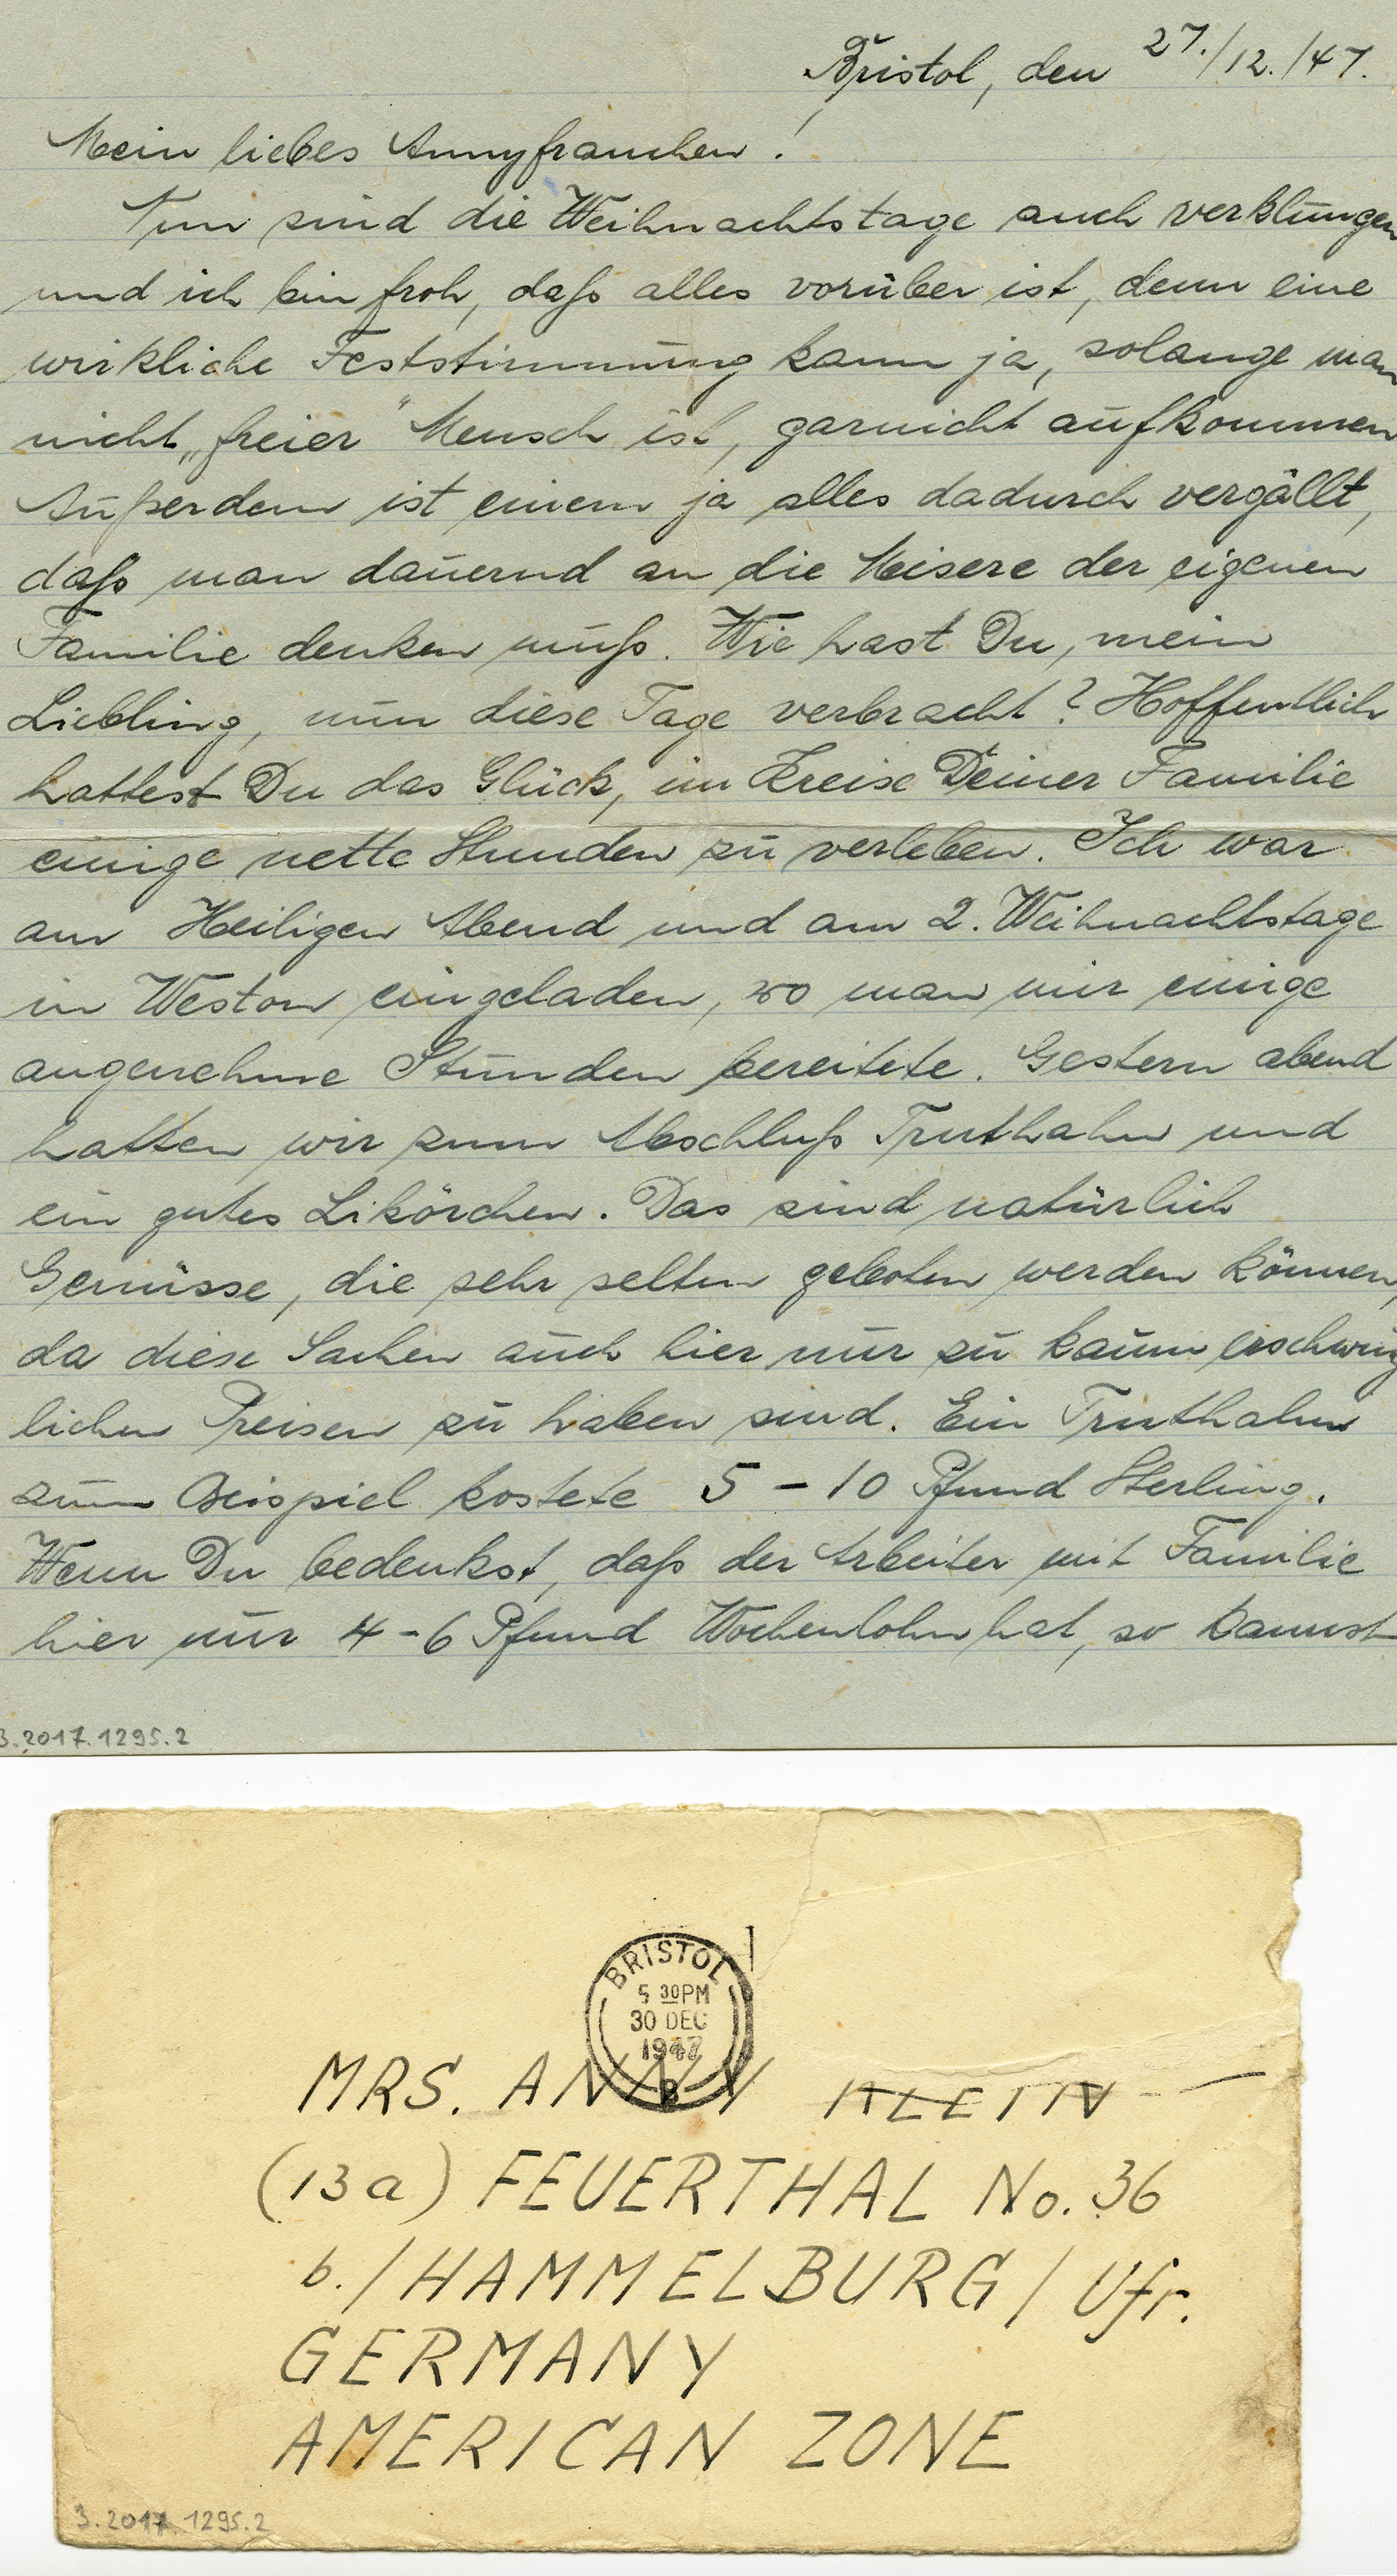 Bristol, den 27./12./47.
Mein liebes Annyfrauchen!
Nun sind die Weihnachtstage auch verklungen
und ich bin froh, daß alles vorüber ist, denn eine
wirkliche Feststimmung kann ja, solange man
nicht „freier“ Mensch ist, garnicht aufkommen
Außerdem ist einem ja alles dadurch vergällt,
daß man dauernd an die Misere der eigenen
Familie denken muß. Wie hast Du, mein
Liebling, nun diese Tage verbracht? Hoffentlich
hattest Du das Glück, im Kreise Deiner Familie
einige nette Stunden zu verleben. Ich war
am Heiligen Abend und am 2. Weihnachtstage
in Weston eingeladen, wo man mir einige
angenehme Stunden bereitete. Gestern abend
hatten wir zum Abschluß Truthahn und
ein gutes Likörchen. Das sind natürlich
Genüsse, die sehr selten geboten werden können,
da diese Sachen auch hier nur zu kaum erschwing
lichen Preisen zu haben sind. Ein Truthahn
zum Beispiel kostete 5 – 10 Pfund Sterling.
Wenn Du bedenkst, daß der Arbeiter mit Familie
hier nur 4 – 6 Pfund Wochenlohn hat, so kannst
3.2017.1295.2
BRISTOL
5 30 PM
30 DEC
1947
B
MRS. ANNY KLEIN
(13a) FEUERTHAL No. 36
b./HAMMELBURG/Ufr.
GERMANY
AMERICAN ZONE
3.2017.1295.2